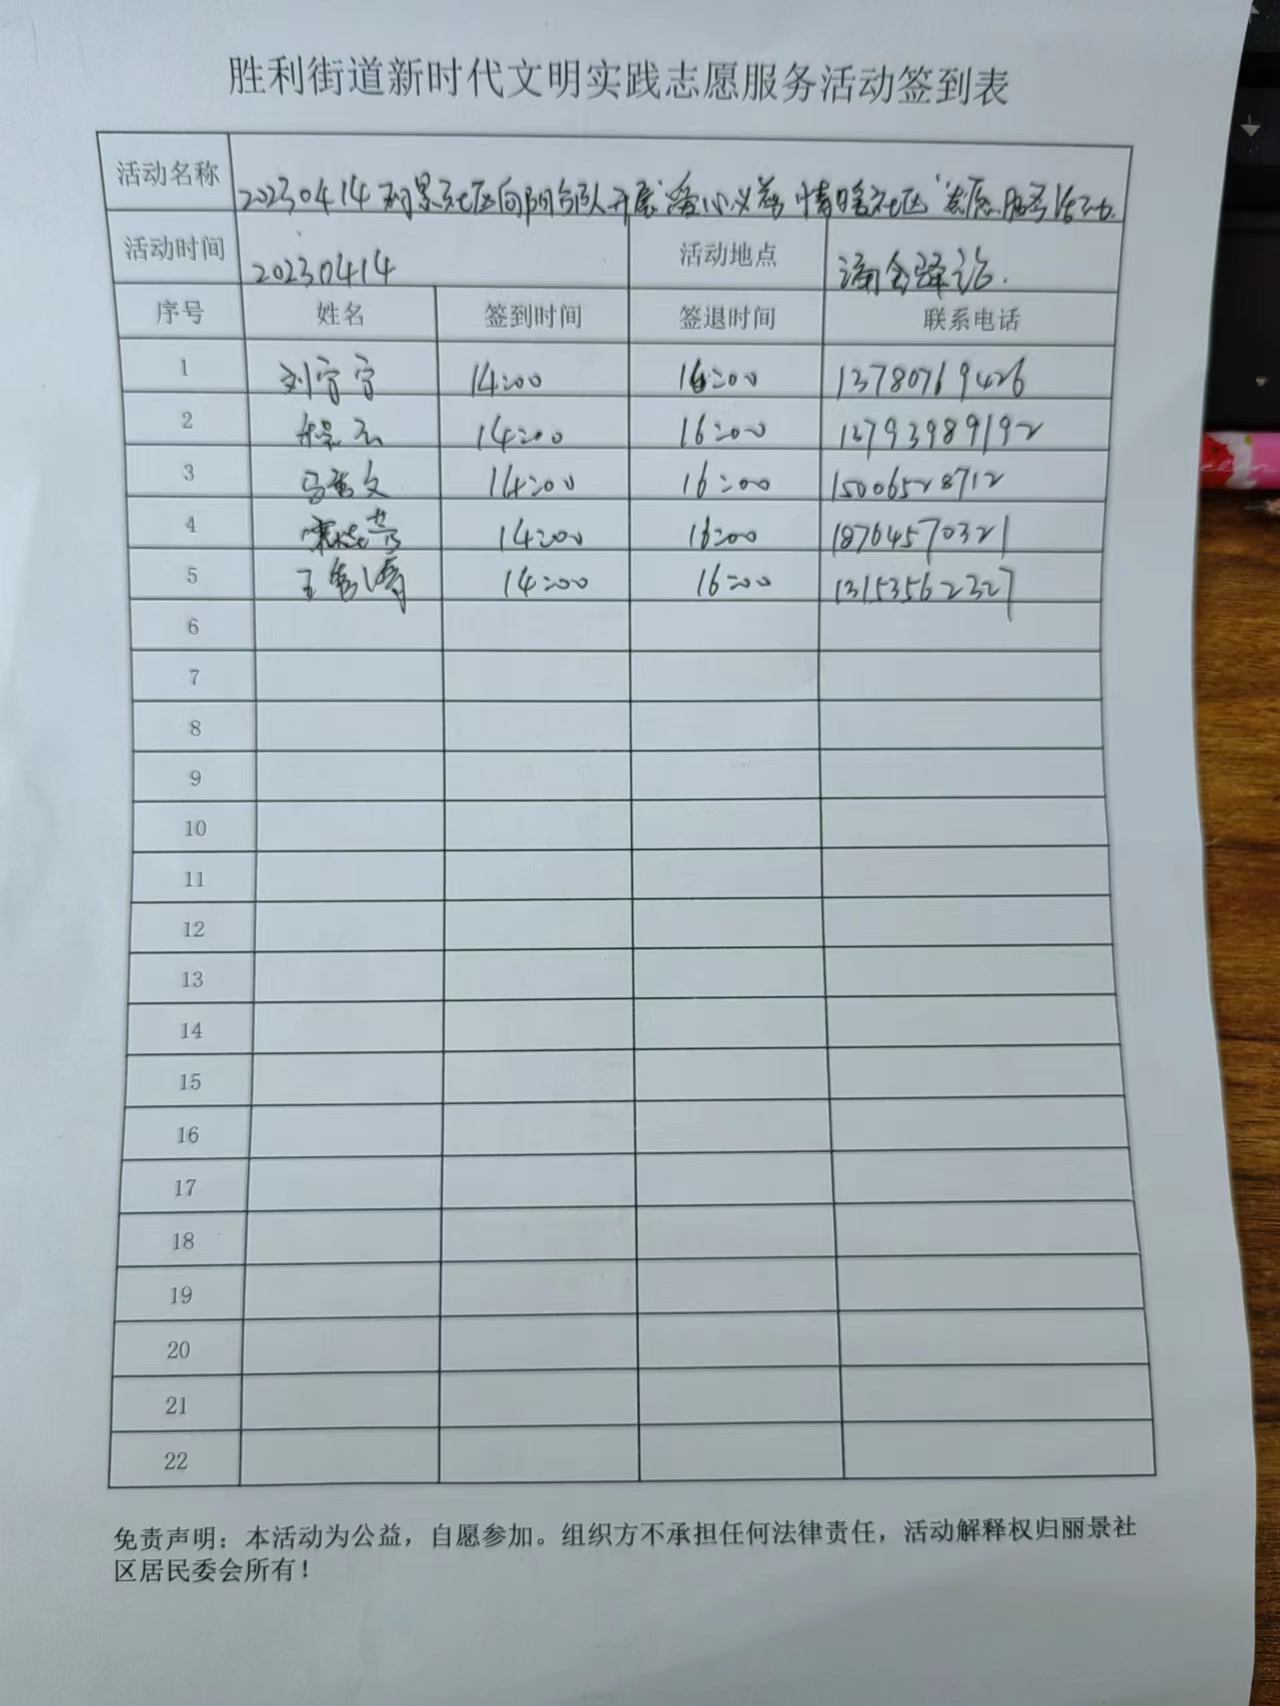 胜利街道新时代文明实践志愿服务活动签到表
活动名称 20230414丽景社区向阳合队开展"爱心义剪 情暖社区"志愿服务活动
活动时间 20230414 活动地点
序号 姓名 签到时间 签退时间 联系电话
1 刘宁宁 14:00 16:00 13780769426
2 14:00 16:00 13793989192
3 马秀文 14:00 16:00 15006528712
4 14:00 16:00 18764570321
5 14:00 16:00 13153562327
6
7
8
9
10
11
12
13
14
15
16
17
18
19
20
21
22
免责声明：本活动为公益，自愿参加。组织方不承担任何法律责任，活动解释权归丽景社
区居民委会所有！